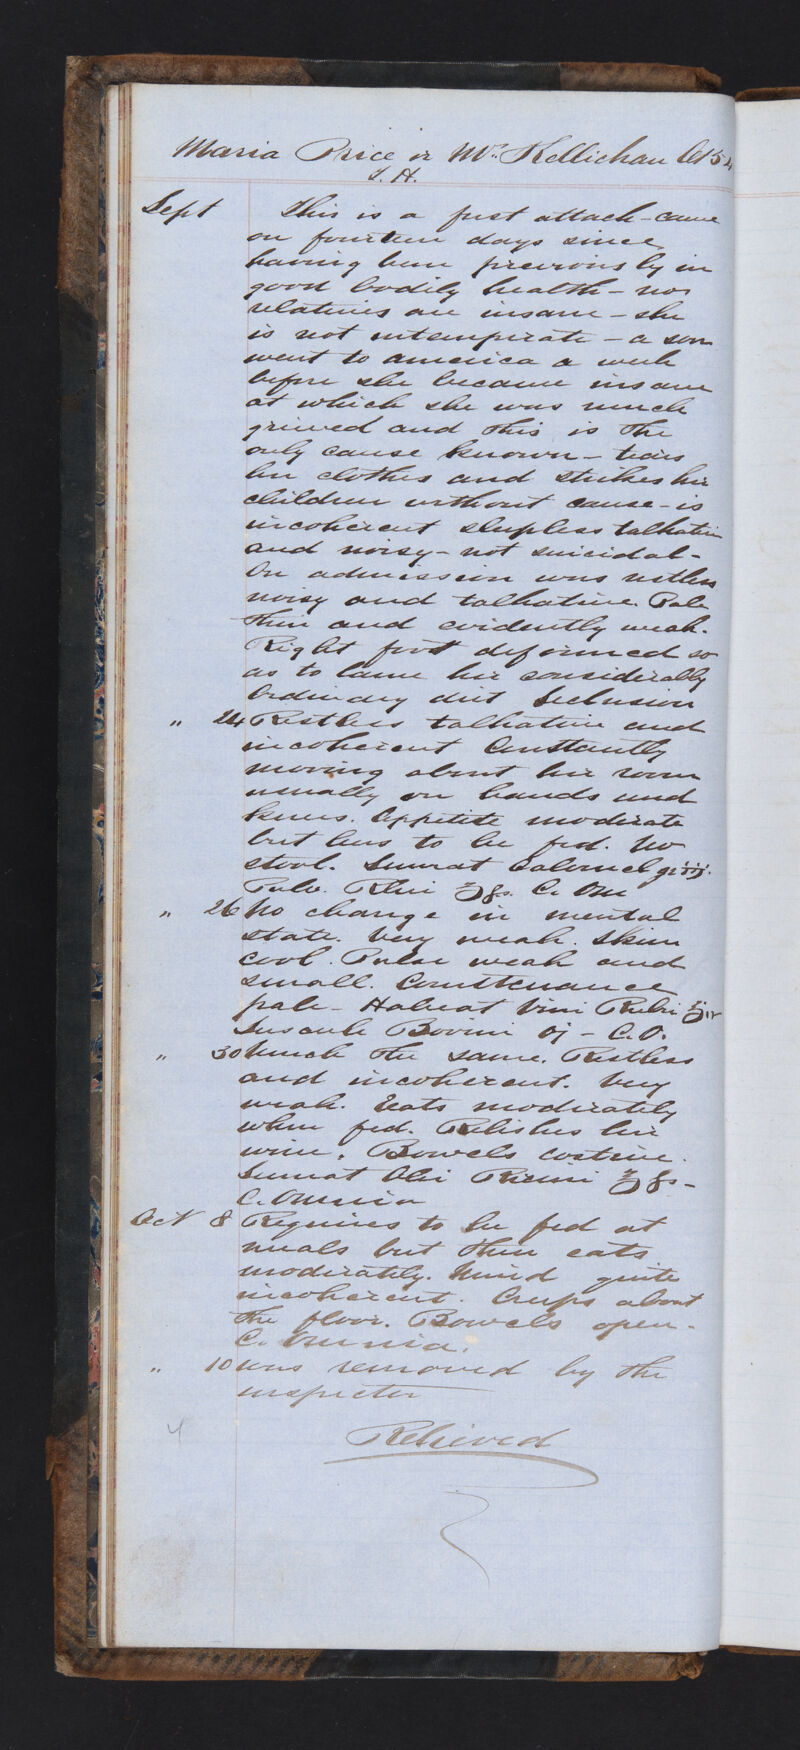 Maria Price or McKellichan Aet 54
S. H.
Sept This is a first attack - came
on fourteen days since
having been previously in
good bodily health - no
relatives are insane - she
is not intemperate - a son
went to america a week
before she became insane
at which she was much
grieved and this is the
only cause known - tears
her clothes and strikes her
children without cause - is
incoherent sleepless talkative
and noisy - not suicidal -
On admission was restless
noisy and talkative. Pale
thin and evidently weak.
Right foot deformed so
as to lame her considerably
Ordinary diet Seclusion
" 24 Restless talkative and
incoherent Constantly
moving about her room
usually on hands and
knees. Appetite moderate
but has to be fed. No
stool. Sumat Calomel gr iij.
Pulv. Rhei ʒfs. C. Om
" 26 No change in mental
state. Very weak. Skin
cool. Pulse weak and
small. Countenance
pale - Habeat Vini Rubri ℥iv
Juscule Bovini Oj - C. O.
" 30 Much the same. Restless
and incoherent. Very
weak. Eats moderately
when fed. Relishes her
wine. Bowels costive.
Sumat Olei Ricini ℥fs -
C. Omnia
Oct 8 Requires to be fed at
meals but then eats
moderately. Mind quite
incoherent. Creeps about
the floor. Bowels open -
C. Omnia.
" 10 Was removed by the
inspector
Relieved